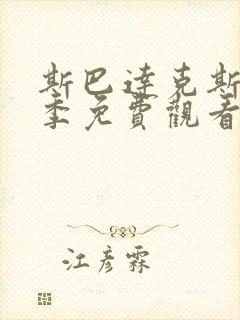 斯巴達克斯
季免費觀看
江彦霖